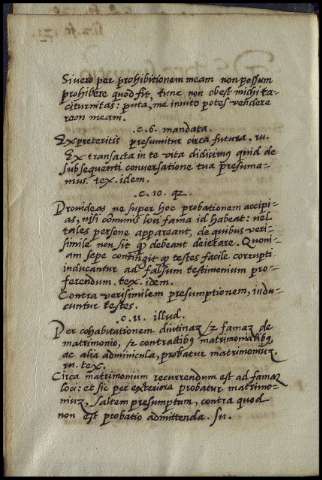 Si vero per prohibitionem meam non possum
prohibere quod fit, tunc non obest michi ta-
citurnitas: puta, me invito potes vendere
rem meam.
.c.6. mandata.
Ex preteritis presumitur circa futura. ru.
Ex transacta in te vita didicimus quid de
subsequenti conversatione tua presuma-
mus. tex. idem.
.c.10. qz.
Provideas ne super hoc probationem accipi-
as, nisi communis loci fama id habeat: vel
tales persone appareant, de quibus veri-
simile non sit qd debeant deierare. Quoni-
am sepe contingit qd testes facile corrupti
inducantur ad falsum testimonium pro-
ferendum. tex. idem.
Contra verisimilem presumptionem, indu-
cuntur testes.
.c.11. illud.
Per cohabitationem diutinaz, & famaz de
matrimonio, & contractibus matrimonialibus,
ac alia adminicula, probatur matrimoniuz.
in. tex.
Circa matrimonium recurrendum est ad famaz
loci: et sic per exteriora probatur matrimo-
niuz. saltem presumptum, contra quod
non est probatio admittenda.